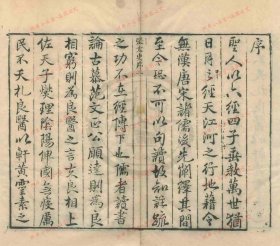 序
聖人以六經四子垂教萬世猶
日月之經天江河之行地籍令
無漢唐宋諸儒後先闡繹其間
至今恐不可以句讀故知註疏
之功不在經傳下也儒者讀書
論古慕范文正公願達則為良
相窮則為良醫之言夫良相上
佐天子燮理陰陽俾國無疲厲
民不夭札良醫以軒黃靈素之